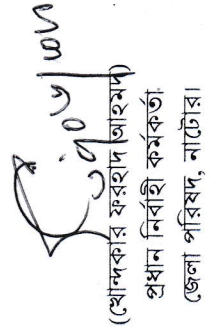 (খোন্দকার ফরহাদ আহমদ)
প্রধান নির্বাহী কর্মকর্তা
জেলা পরিষদ, নাটোর।